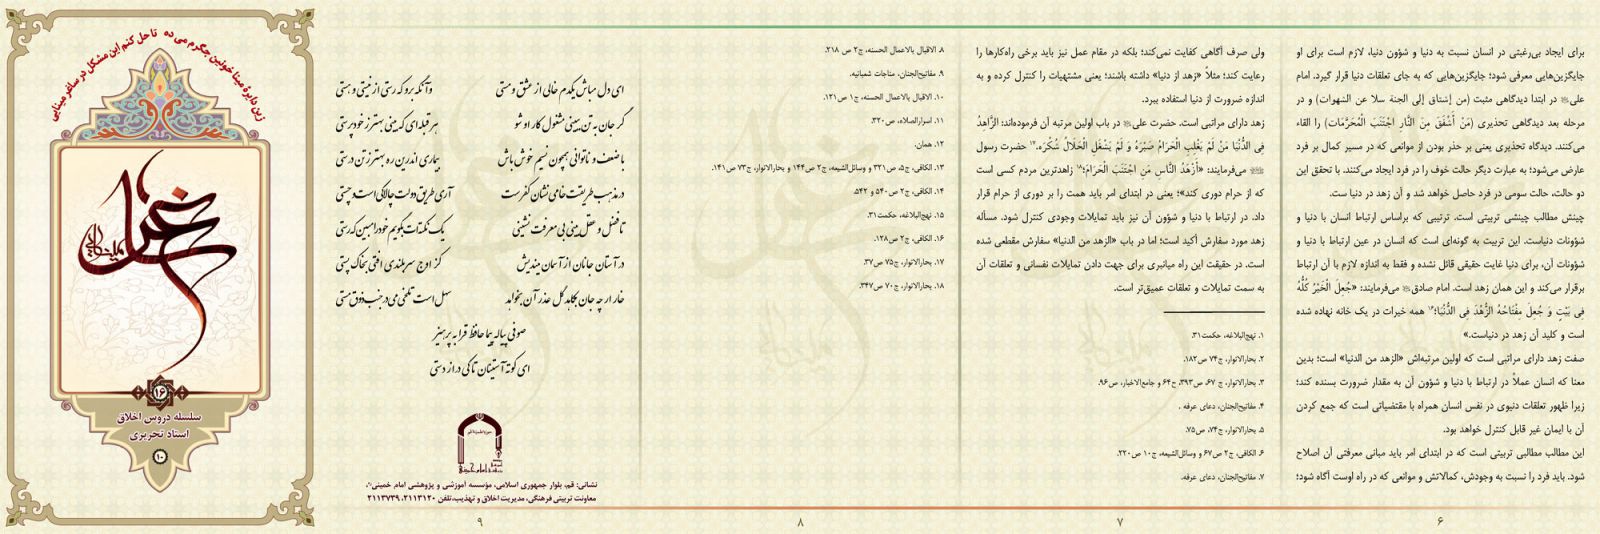 برای ایجاد بی‌رغبتی در انسان نسبت به دنیا و شؤون دنیا، لازم است برای او
جایگزین‌هایی معرفی شود؛ جایگزین‌هایی که به جای تعلقات دنیا قرار گیرد. امام
علی در ابتدا دیدگاهی مثبت (من إشتاق إلی الجنة سلا عن الشهوات) و در
مرحله بعد دیدگاهی تحذیری (مَنْ أَشْفَقَ مِنَ النَّارِ اجْتَنَبَ الْمُحَرَّمَات) را القاء
می‌کنند. دیدگاه تحذیری یعنی بر حذر بودن از موانعی که در مسیر کمال بر فرد
عارض می‌شود؛ به عبارت دیگر حالت خوف را در فرد ایجاد می‌کنند. با تحقق این
دو حالت، حالت سومی در فرد حاصل خواهد شد و آن زهد در دنیا ست.
چینش مطالب چینشی تربیتی است. ترتیبی که براساس ارتباط انسان با دنیا و
شؤونات دنیاست. این تربیت به گونه‌ای است که انسان در عین ارتباط با دنیا و
شؤونات آن، برای دنیا غایت حقیقی قائل نشده و فقط به اندازه لازم با آن ارتباط
برقرار می‌کند و این همان زهد است. امام صادق می‌فرمایند: «جُعِلَ الْخَیْرُ کُلُّهُ
فِی بَیْتٍ وَ جُعِلَ مِفْتَاحُهُ الزُّهْدَ فِی الدُّنْیَا؛ همه خیرات در یک خانه نهاده شده
است و کلید آن زهد در دنیاست.»
صفت زهد دارای مراتبی است که اولین مرتبه‌اش «الزهد من الدنیا» است؛ بدین
معنا که انسان عملاً در ارتباط با دنیا و شؤون آن به مقدار ضرورت بسنده کند؛
زیرا ظهور تعلقات دنیوی در نفس انسان همراه با مقتضیاتی است که جمع کردن
آن با ایمان غیر قابل کنترل خواهد بود.
این مطالب مطالبی تربیتی است که در ابتدای امر باید مبانی معرفتی آن اصلاح
شود. باید فرد را نسبت به وجودش، کمالاتش و موانعی که در راه اوست آگاه شود؛
۶
ولی صرف آگاهی کفایت نمی‌کند؛ بلکه در مقام عمل نیز باید برخی راه‌کارها را
رعایت کند؛ مثلاً «زهد از دنیا» داشته باشند؛ یعنی مشتهیات را کنترل کرده و به
اندازه ضرورت از دنیا استفاده ببرد.
زهد دارای مراتبی است. حضرت علی در باب اولین مرتبه آن فرموده‌اند: الزَّاهِدُ
فِی الدُّنْیَا مَنْ لَمْ یَغْلِبِ الْحَرَامُ صَبْرَهُ وَ لَمْ یَشْغَلِ الْحَلَالُ شُکْرَه.۱۷ حضرت رسول
می‌فرمایند: «أَزْهَدُ النَّاسِ مَنِ اجْتَنَبَ الْحَرَامَ؛۱۸ زاهدترین مردم کسی است
که از حرام دوری کند»؛ یعنی در ابتدای امر باید همت را بر دوری از حرام قرار
داد. در ارتباط با دنیا و شؤون آن نیز باید تمایلات وجودی کنترل شود. مسأله
زهد مورد سفارش أکید است؛ اما در باب «الزهد من الدنیا» سفارش مقطعی شده
است. در حقیقت این راه میانبری برای جهت دادن تمایلات نفسانی و تعلقات آن
به سمت تمایلات و تعلقات عمیق‌تر است.
۱. نهج‌البلاغه، حکمت۳۱.
۲. بحارالانوار، ج۷۴ ص۱۸۲.
۳. بحارالانوار، ج ۶۷ ص۳۹۳، ح۶۴ و جامع‌الاخبار، ص۹۶.
۴. مفاتیح‌الجنان، دعای عرفه .
۵. بحارالانوار، ج۷۴، ص۷۵.
۶. الکافی، ج۲ ص۶۷ و وسائل‌الشیعه، ج۱۰ ص۲۲۰.
۷. مفاتیح‌الجنان، دعای عرفه.
۷
۸. الاقبال بالاعمال الحسنه، ج۲ ص ۲۱۸.
۹. مفاتیح‌الجنان، مناجات شعبانیه.
۱۰. الاقبال بالاعمال الحسنه، ج۱ ص۱۲۱.
۱۱. اسرارالصلاه، ص۳۲۰.
۱۲. همان.
۱۳. الکافی، ج۵، ص۳۲۱ و وسائل‌الشیعه، ج۲ ص۱۴۴ و بحارالانوار، ج۷۳ ص۱۴۱.
۱۴. الکافی، ج۲ ص۵۴۰ و ۵۴۲.
۱۵. نهج‌البلاغه، حکمت۳۱.
۱۶. الکافی، ج۲ ص۱۲۸.
۱۷. بحارالانوار، ج۷۵ ص۳۷.
۱۸. بحارالانوار، ج۷۰ ص۳۴۷.
۸
ای دل مباش یکدم خالی از عشق و مستی وآنگه برو که رستی از نیستی و هستی
گر جان به تن ببینی مشغول کار او شو هر قبله‌ای که بینی بهتر ز خودپرستی
با ضعف و ناتوانی همچون نسیم خوش باش بیماری اندرین ره بهتر ز تن درستی
در مذهب طریقت خامی نشان کفرست آری طریق دولت چالاکی است و چستی
تا فضل و عقل بینی بی معرفت نشینی یک نکته‌ات بگویم خود را مبین که رستی
در آستان جانان از آسمان میندیش کز اوج سربلندی افتی به خاک پستی
خار ار چه جان بکاهد گل عذر آن بخواهد سهل است تلخی می در جنب ذوق مستی
صوفی پیاله پیما حافظ قرابه پرهیز
ای کوته آستینان تا کی دراز دستی
نشانی: قم، بلوار جمهوری اسلامی، مؤسسه آموزشی و پژوهشی امام خمینی،
معاونت تربیتی فرهنگی، مدیریت اخلاق و تهذیب،تلفن ۲۱۱۳۱۲۰، ۲۱۱۳۷۳۹
۹
زین دایرهٔ مینا خونین جگرم می ده تا حل کنم این مشکل در ساغر مینایی
۱۶
سلسله دروس اخلاق
استاد تحریری
۱۰